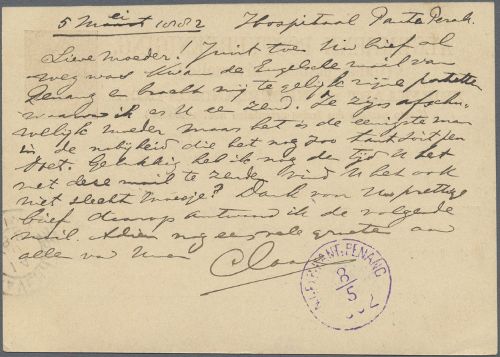 5 Mei 1882 Hospitaal Pante Perak.
Lieve Moeder! Juist toen Uw brief al
weg was kwam de Engelsche mail van
Penang en bracht mij te gelijk mijne portretten
waarvan ik er U een zend. Ze zijn afschu-
welijk moeder maar het is de eenigste man
in de nabijheid die het nog zoo
doet. Gelukkig heb ik nog den tijd U het
met deze mail te zenden. Vind U het ook
niet slecht Moesje? Dank voor Uw prettige
brief daarop antwoord ik de volgende
mail. Adieu nog eens vele groeten aan
allen van Uwen
PENANG
8/5